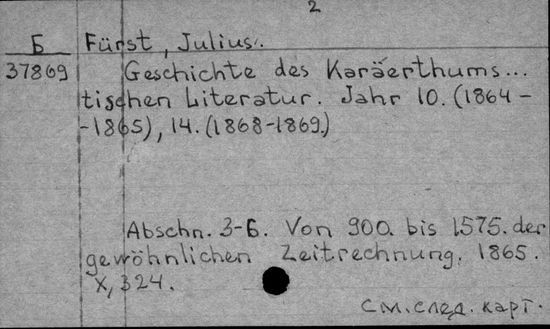 2
Б Fürst, Julius.
37869 Geschichte des Karäerthums...
tischen Literatur. Jahr 10. (1864-
-1865), 14. (1868-1869.)
Abschn. 3-6. Von 900. bis 1575. der
gewöhnlichen Zeitrechnung. 1865.
X, 324.
см. след. карт.